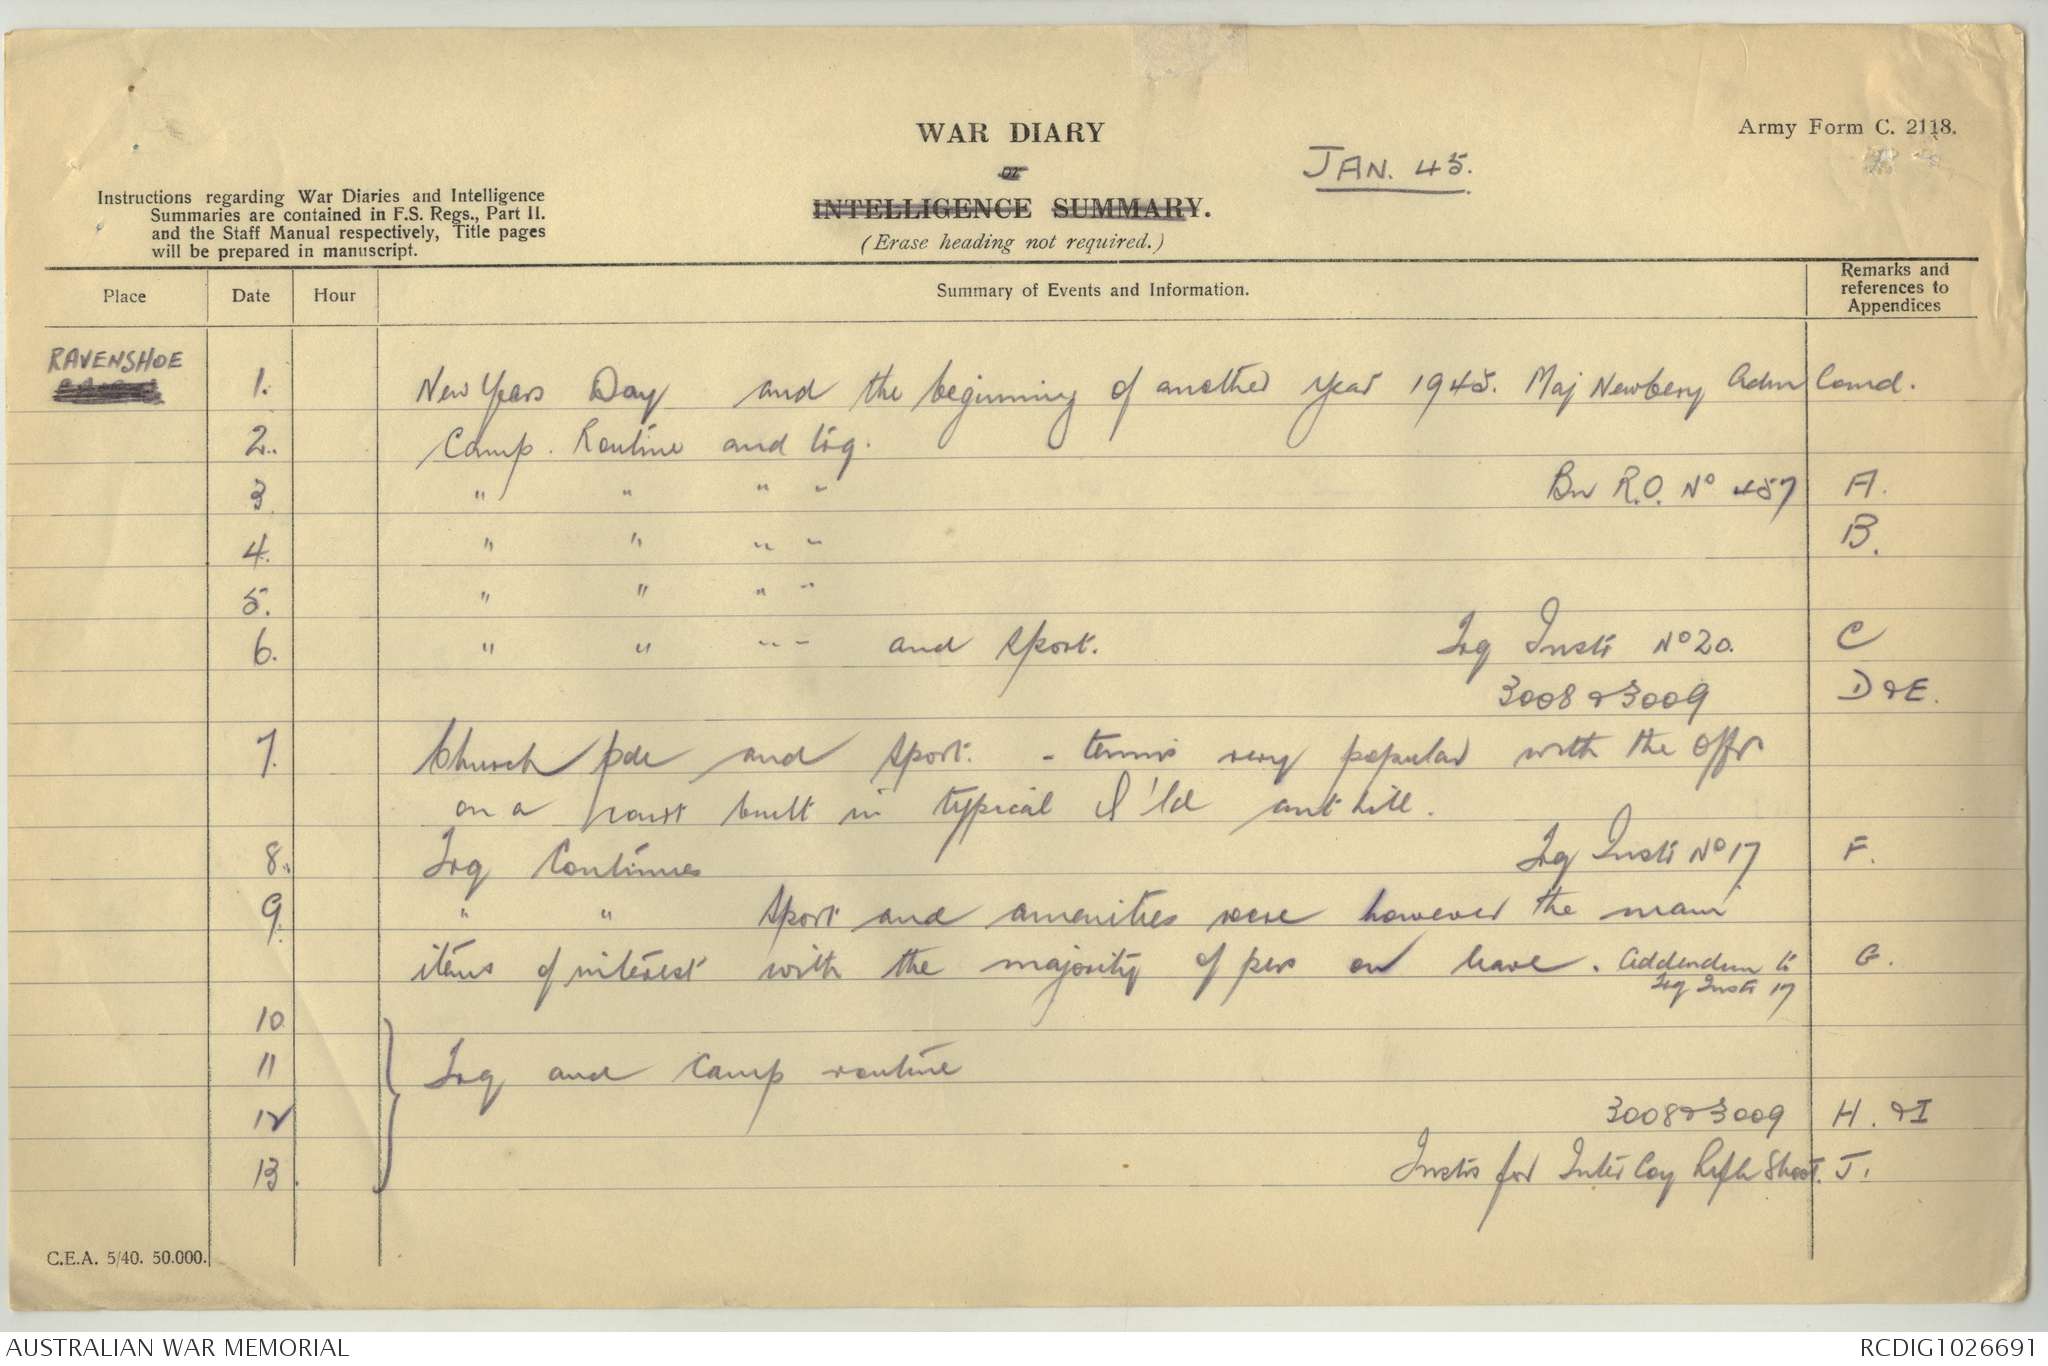 WAR DIARY
Army Form C. 2118.
or
JAN. 45.
INTELLIGENCE SUMMARY.
(Erase heading not required.)
Instructions regarding War Diaries and Intelligence
Summaries are contained in F.S. Regs., Part II.
and the Staff Manual respectively, Title pages
will be prepared in manuscript.
Place Date Hour Summary of Events and Information. Remarks and references to Appendices
RAVENSHOE
1. New Years Day and the beginning of another year 1945. Maj Newbery Adm Comd.
2. Camp Routine and trg.
3 " " " " Bn R.O. No 457 A.
4. " " " " B.
5. " " " "
6. " " " " and Sport. Trg Instr No 20. C
3008 & 3009 D & E.
7. Church pde and sport. - tennis very popular with the offrs
on a court built in typical Q'ld ant hill.
8. Trg Continues Trg Instr No 17 F.
9. " " Sport and amenities were however the main
items of interest with the majority of pers on leave. Addendum to G.
Trg Instr 17
10
11 Trg and Camp routine
12 3008 & 3009 H. & I
13. Instrs for Inter Coy Rifle Shoot. J.
C.E.A. 5/40. 50.000.
AUSTRALIAN WAR MEMORIAL
RCDIG1026691